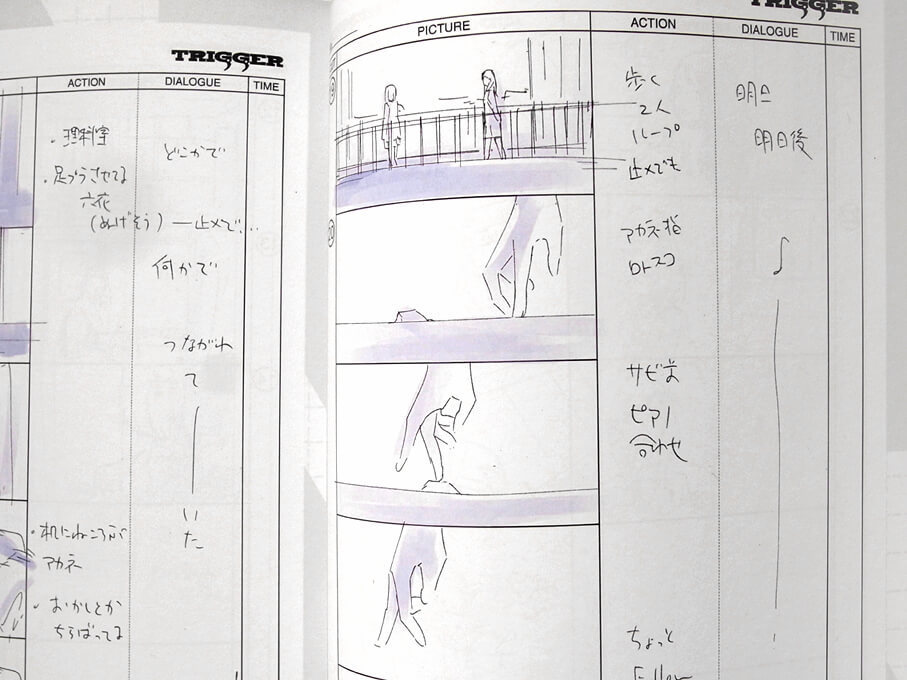 TRIGGER
ACTION
DIALOGUE
TIME
・理科室
どこかで
・足ぶらさせてる
六花
何かで
つながれ
て
い
た
・机にねころぶ
アカネ
・おかしとか
ちらばってる
TRIGGER
PICTURE
ACTION
DIALOGUE
TIME
歩く
2人
ループ
止メでも
明日
明日後
アカネ指
ロトスコ
サビは
ピアノ
合わせ
ちょっと